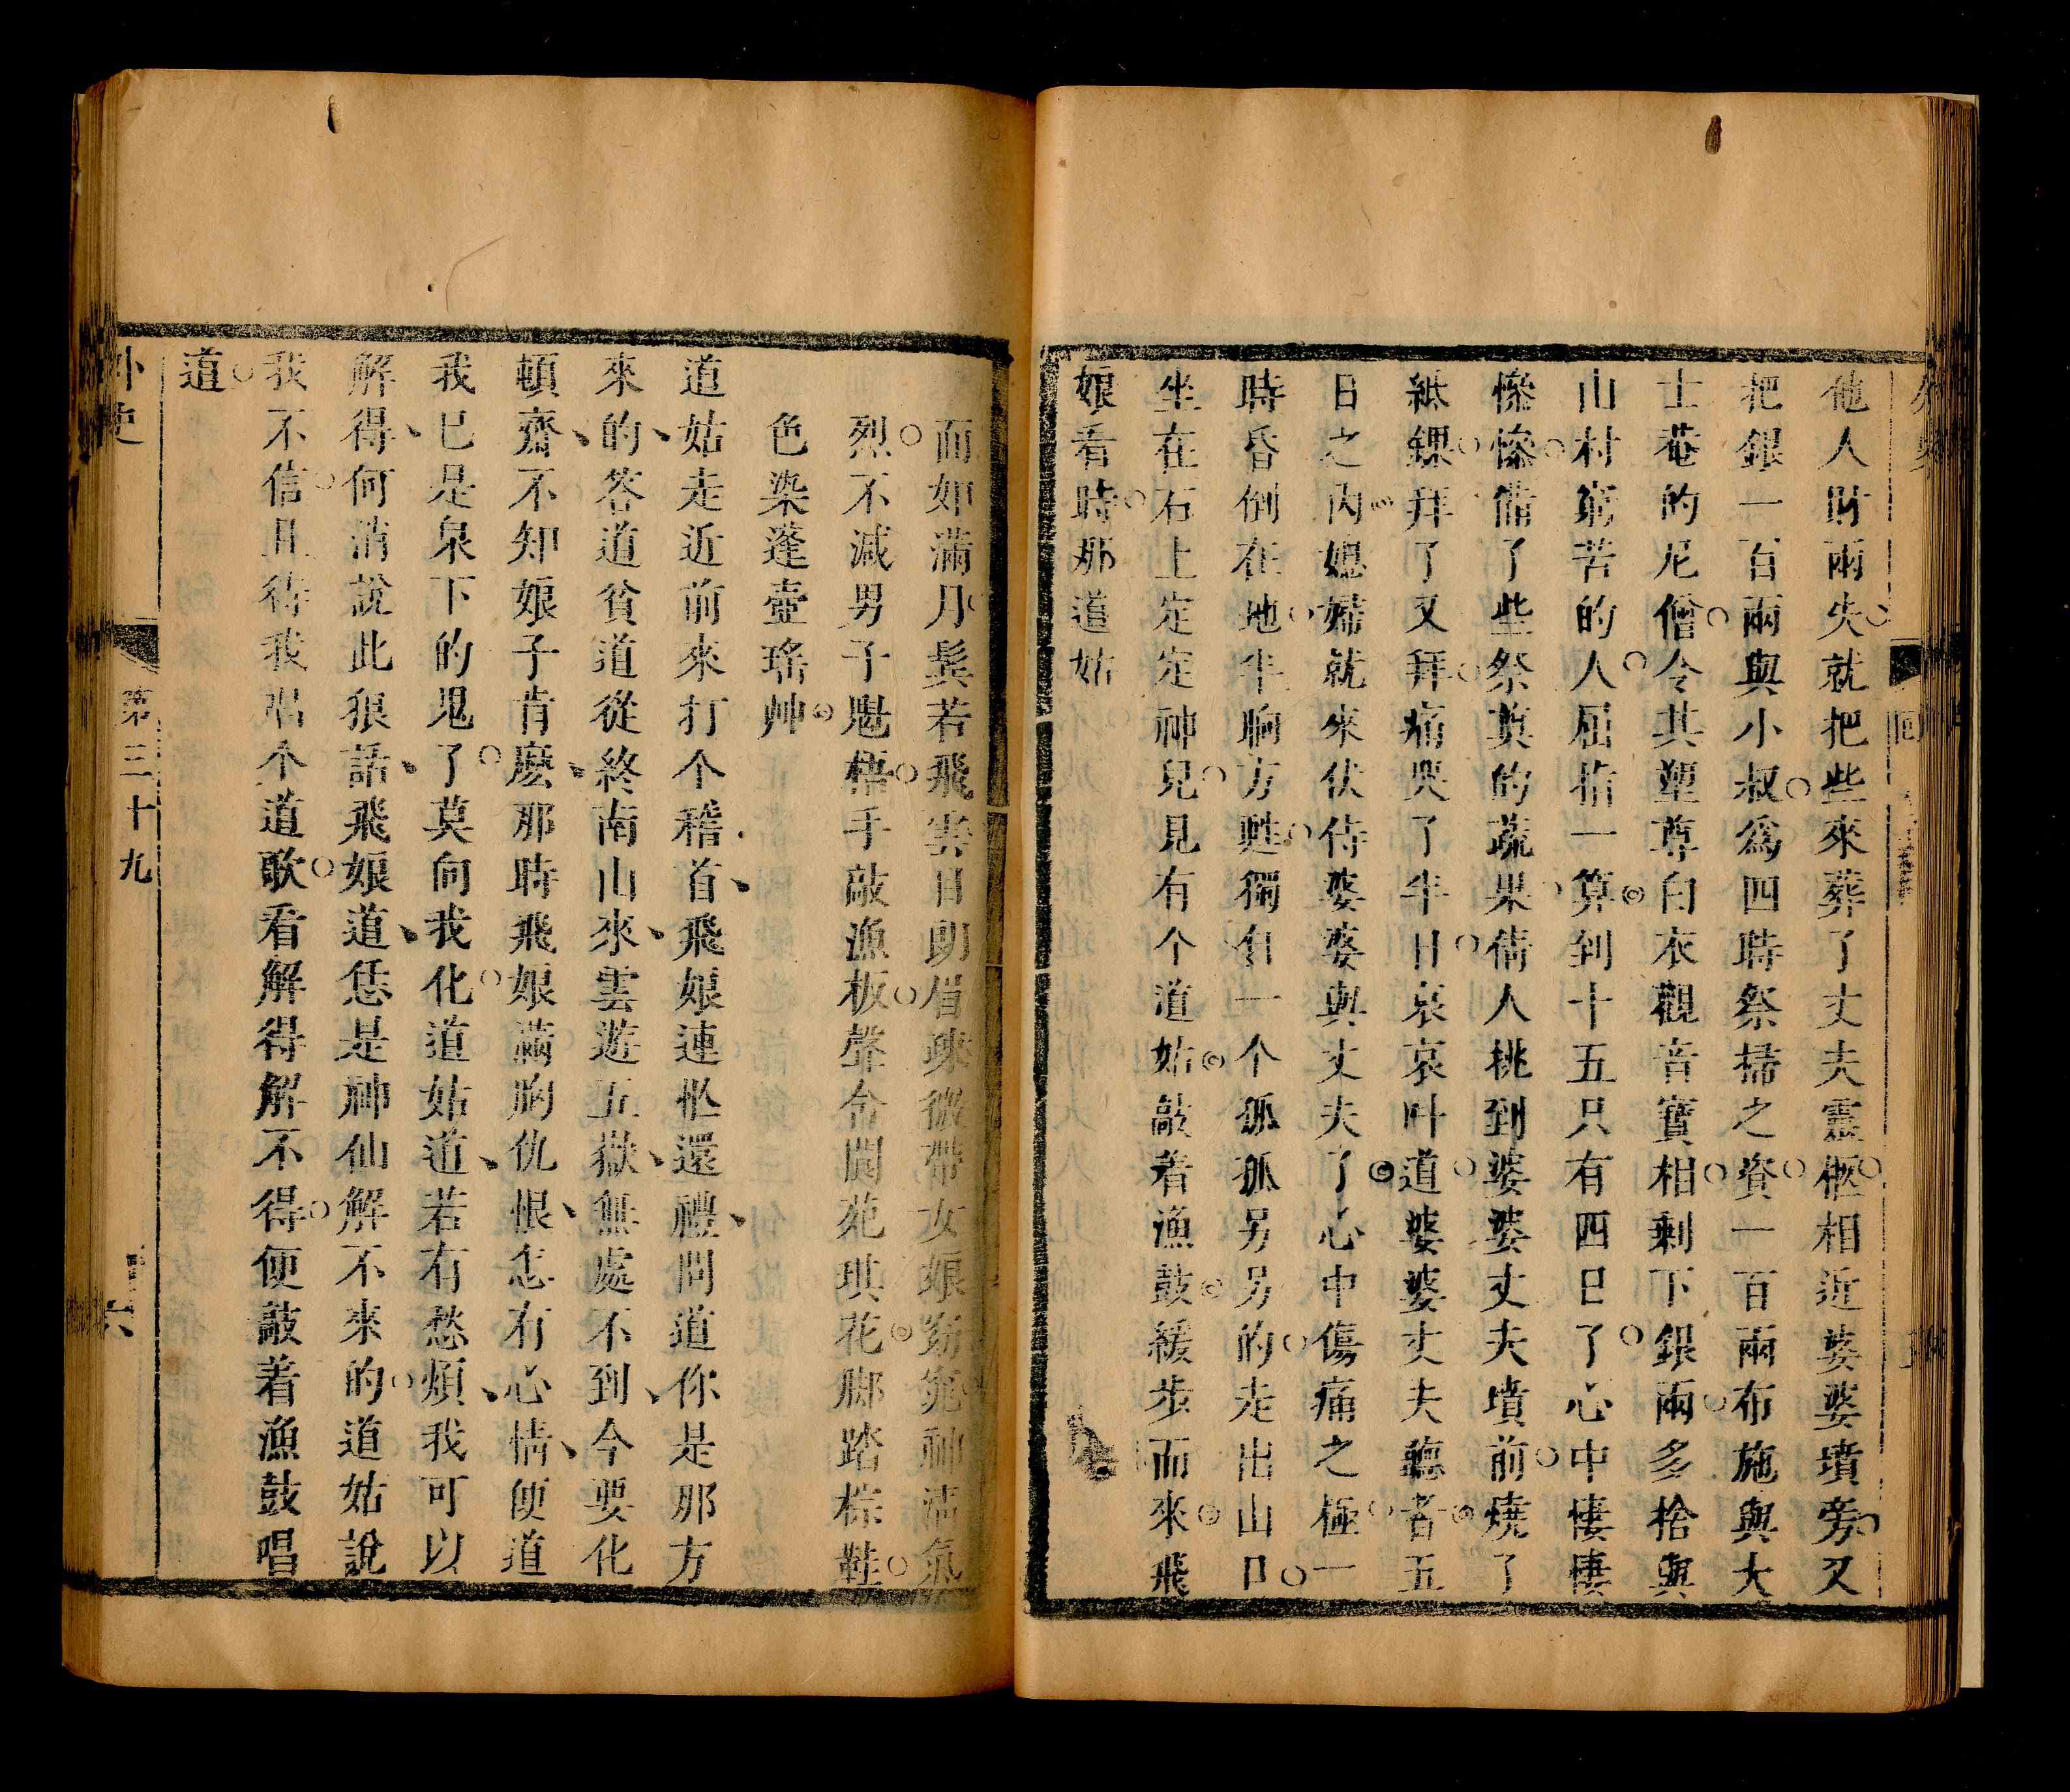 他人財兩失就把些來葬了丈夫靈柩相近婆婆墳旁又
把銀一百兩與小叔爲四時祭掃之資一百兩布施與大
士菴的尼僧令其塑尊白衣觀音寶相剩下銀兩多捨與
山村窮苦的人屈指一算到十五只有四日了心中悽悽
慘慘備了些祭奠的蔬果倩人挑到婆婆丈夫墳前燒了
紙錁拜了又拜痛哭了半日哀哀叶道婆婆丈夫聽者五
日之內媳婦就來伏侍婆婆與丈夫了心中傷痛之極一
時昏倒在地半晌方甦獨自一个孤孤另另的走出山口
坐在石上定定神兒見有个道姑敲着漁鼓緩步而來飛
娘看時那道姑
面如滿月鬓若飛雲目朗眉疎微帶女娘窈窕神清氣
烈不減男子魁梧手敲漁板聲令閬苑琪花脚踏棕鞋
色染蓬壺瑤艸
道姑走近前來打个稽首飛娘連忙還禮問道你是那方
來的答道貧道從終南山來雲遊五嶽無處不到今要化
頓齋不知娘子肯麽那時飛娘滿胸仇恨怎有心情便道
我已是泉下的鬼了莫向我化道姑道若有愁煩我可以
解得何消說此狠話飛娘道恁是神仙解不來的道姑說
我不信且待我唱个道歌看解得解不得便敲着漁鼓唱
道
外史
第三十九
六